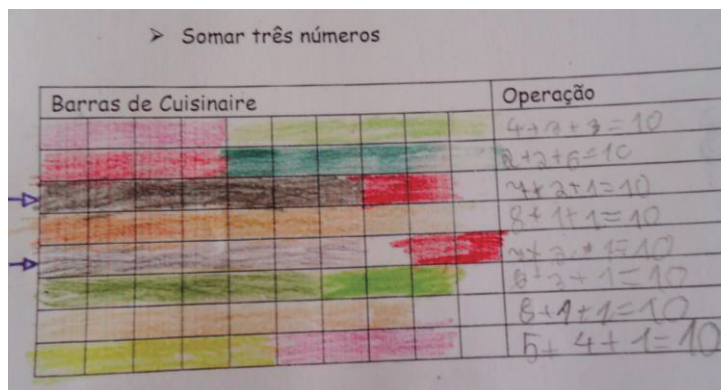 ➤ Somar três números
Barras de Cuisinaire
Operação
4+3+3=10
2+2+6=10
7+2+1=10
8+1+1=10
7+2+1=10
6+3+1=10
8+1+1=10
5+4+1=10